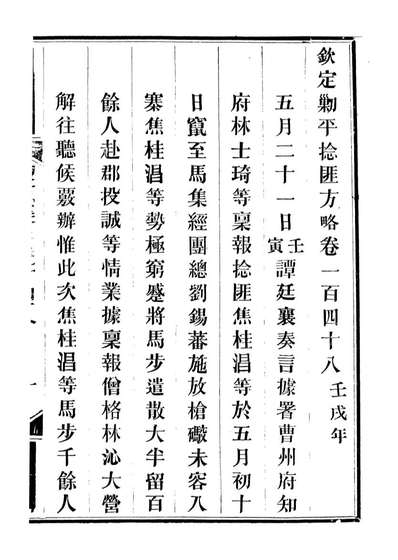 欽定勦平捻匪方略卷一百四十八 壬戌年
五月二十一日壬寅譚廷襄奏言據署曹州府知
府林士琦等稟報捻匪焦桂淐等於五月初十
日竄至馬集經團總劉錫蕃施放槍礮未容入
寨焦桂淐等勢極窮蹙將馬步遣散大半留百
餘人赴郡投誠等情業據稟報僧格林沁大營
解往聽候覈辦惟此次焦桂淐等馬步千餘人